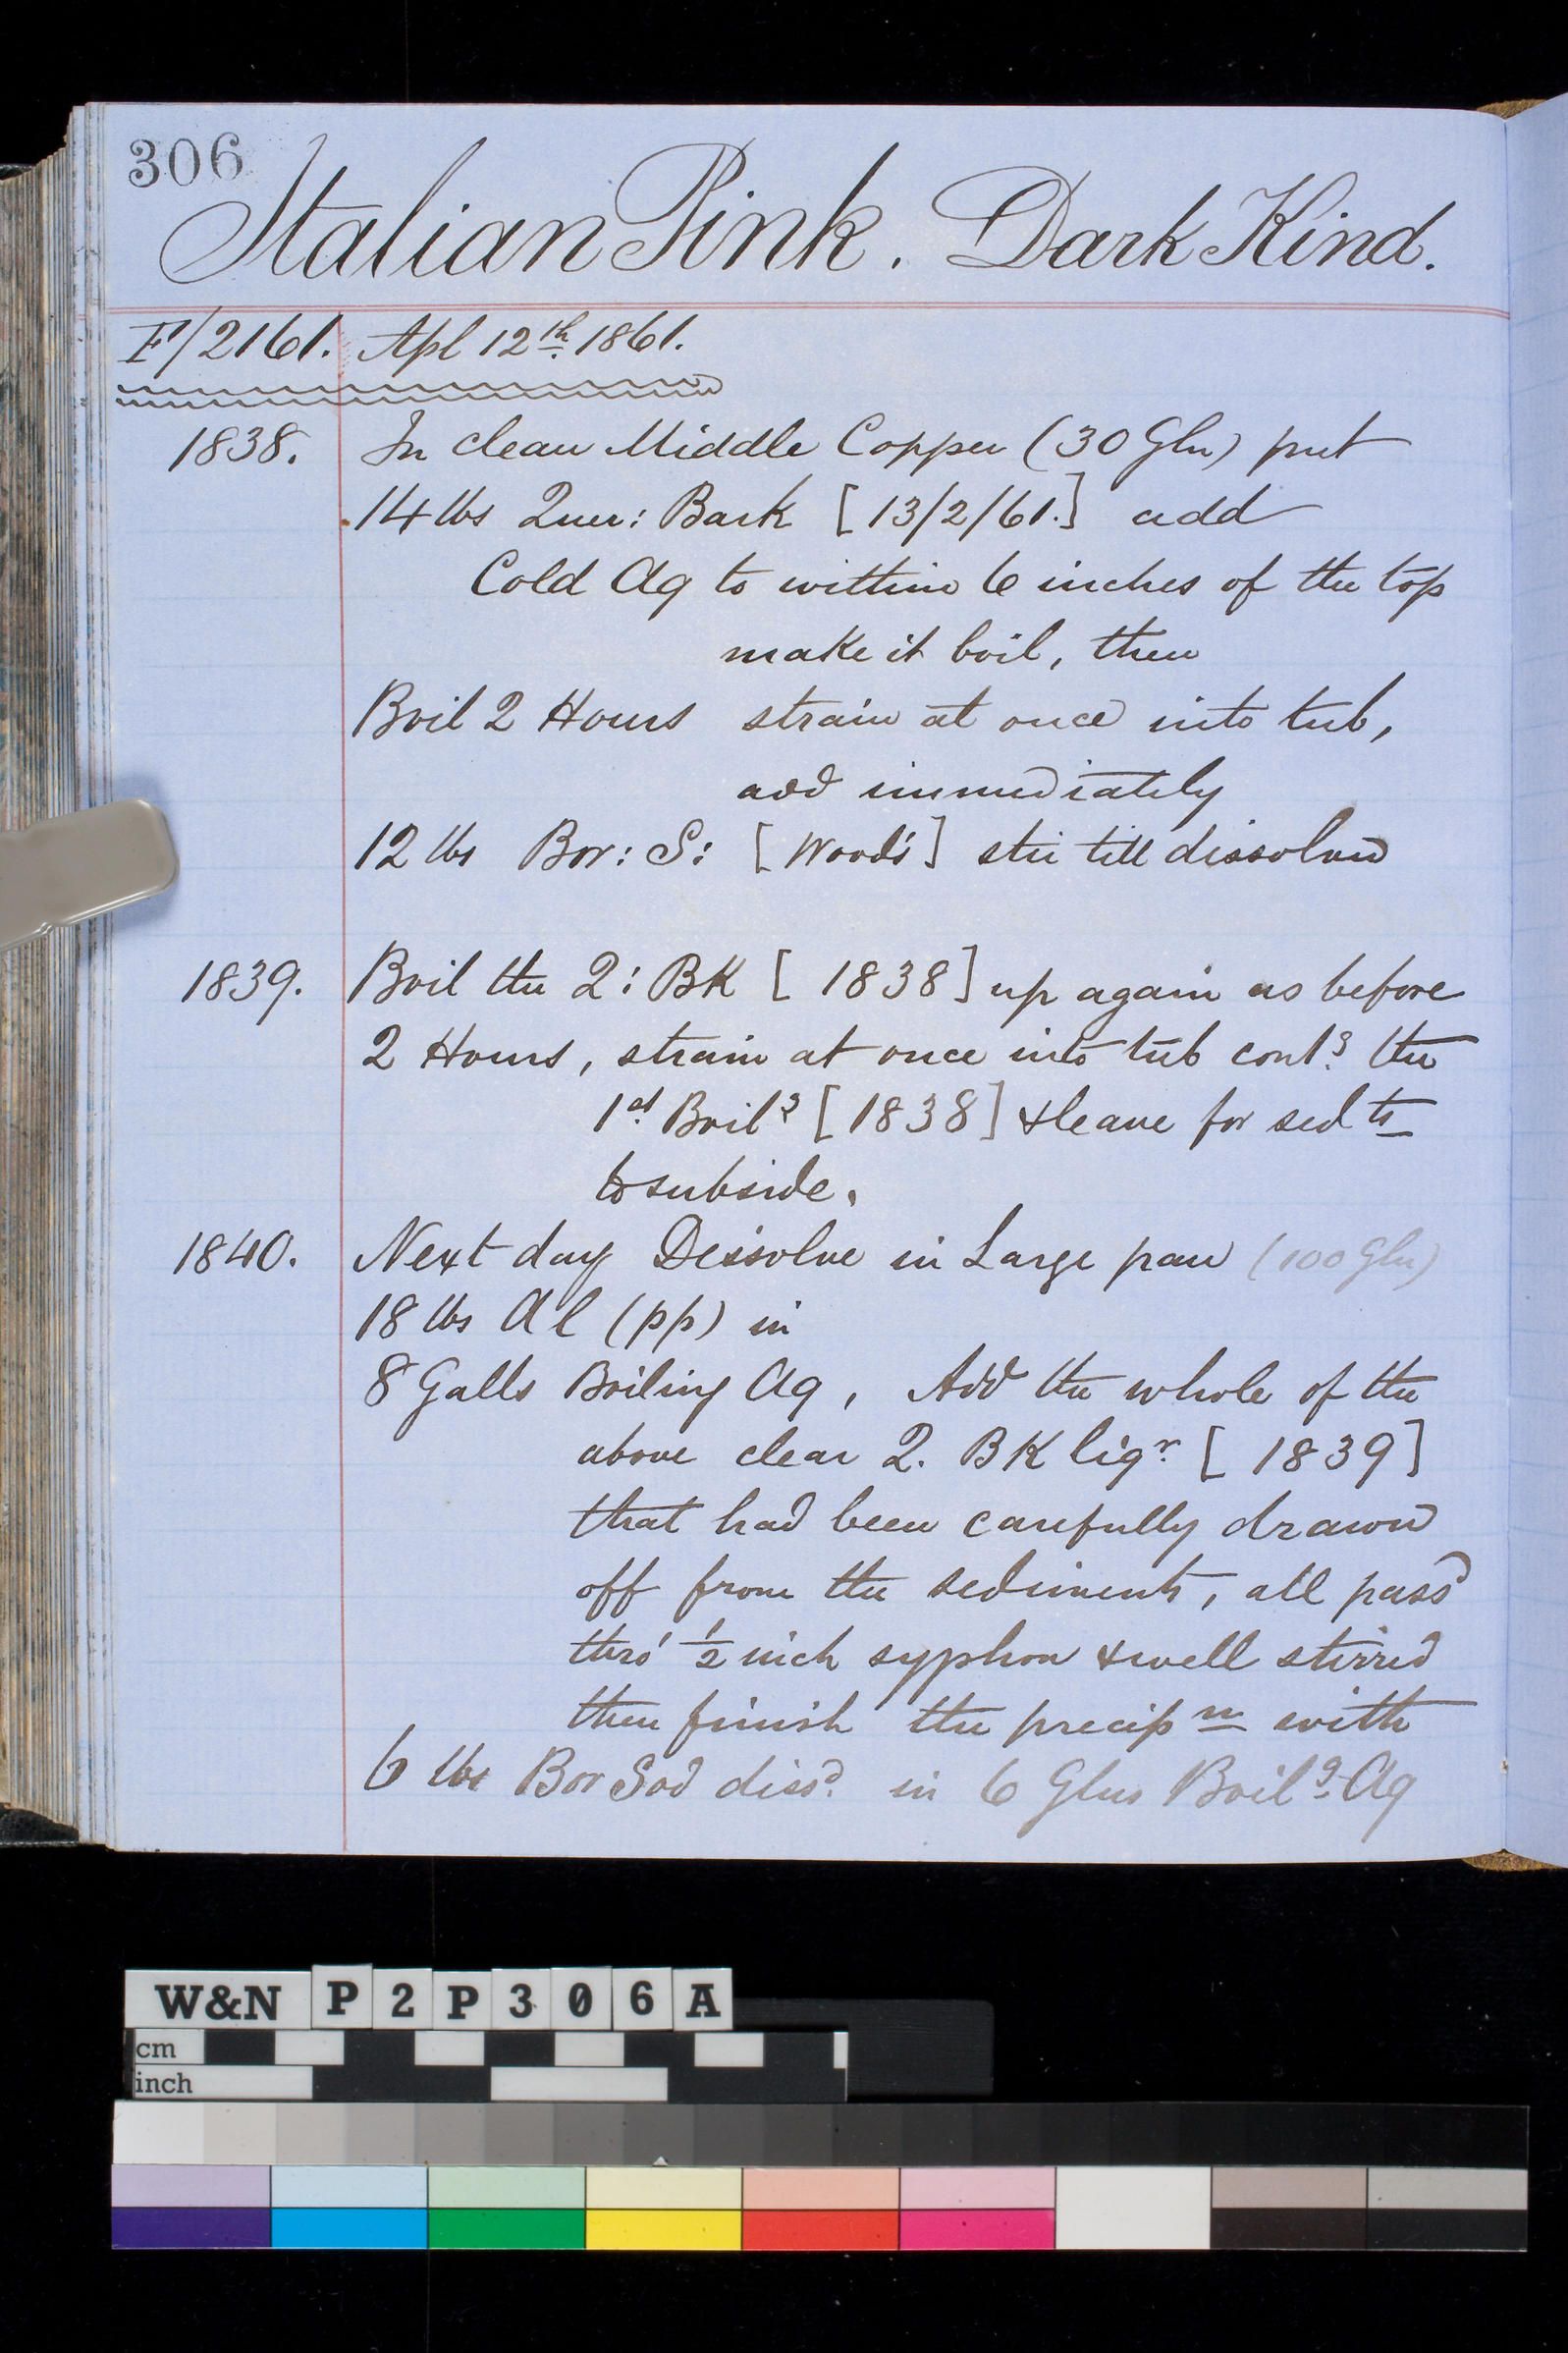 306
Italian Pink. Dark Kind.
F/2161. Apl 12th. 1861.
1838. In clean Middle Copper (30 Gln) put
14 lbs Quer: Bark [13/2/61.] add
Cold Aq to within 6 inches of the top
make it boil, then
Boil 2 Hours strain at once into tub,
add immediately
12 lbs Bor: S: [Wood's] stir till dissolved
1839. Boil the Q: BK [1838] up again as before
2 Hours, strain at once into tub contg. the
1st. Boilg [1838] & leave for sedts
to subside.
1840. Next day Dissolve in Large pan (100 Gln)
18 lbs Al (pp) in
8 Galls Boiling Aq, Add the whole of the
above clear Q. BK liqr. [1839]
that had been carefully drawn
off from the sediments, all passd
thro' 1/2 inch syphon & well stirred
then finish the precipn with
6 lbs Bor Sod dissd. in 6 Glns Boilg. Aq
W&N P2P306A
cm
inch